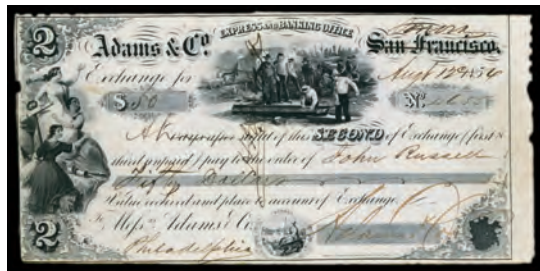 2 Adams & Co. EXPRESS AND BANKING OFFICE San Francisco,
Exchange for Augt 12th 1854
$ 50 No
At sight of this SECOND of Exchange (first &
third unpaid) pay to the order of John Russell
Fifty Dollars
Value received and place to account of Exchange.
To Mess. Adams & Co.
2 Philadelphia